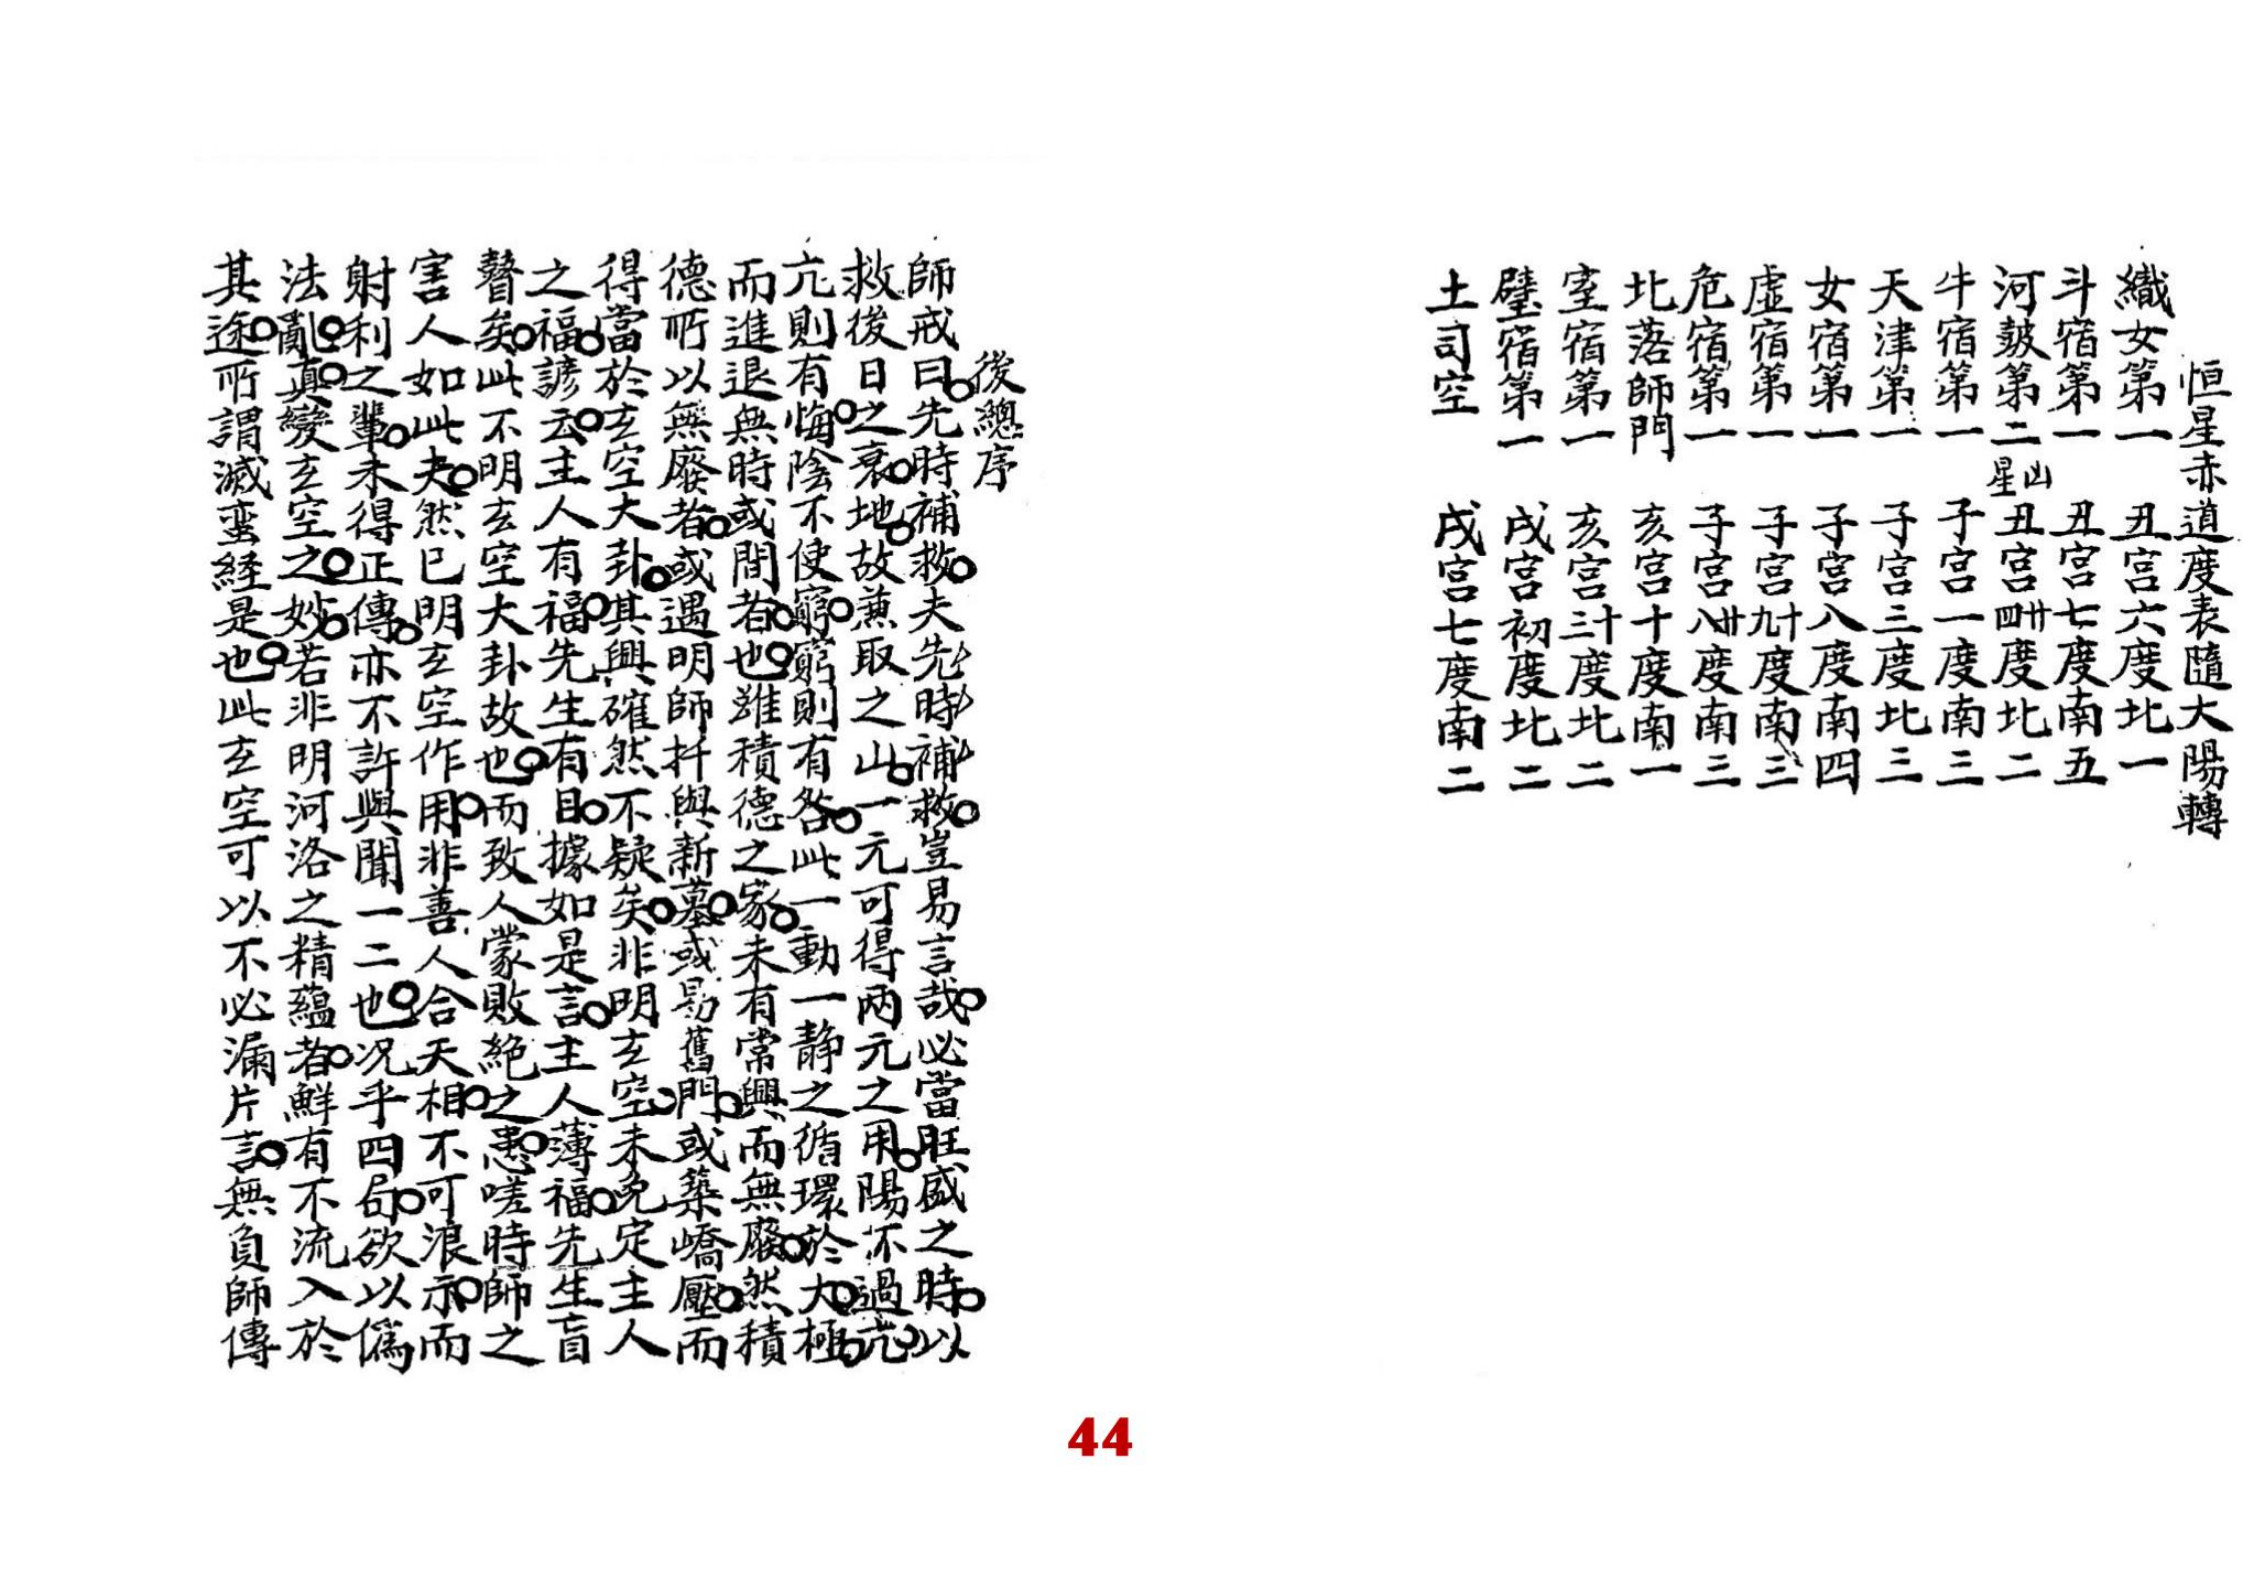 恒星赤道度表隨大陽轉
織女第一 丑宮六度北一
斗宿第一 丑宮七度南五
河皷第二 山星 丑宮廿四度北二
牛宿第一 子宮一度南三
天津第一 子宮三度北三
女宿第一 子宮八度南四
虛宿第一 子宮十九度南三
危宿第一 子宮廿八度南三
北落師門 亥宮十度南一
室宿第一 亥宮十三度北二
壁宿第一 戌宮初度北二
土司空 戌宮七度南二
後總序
師戒曰先時補救夫先時補救豈易言哉必當旺盛之時以
救後日之衰地故兼取之山一元可得兩元之用陽不過亢
亢則有悔陰不使窮窮則有咎此一動一静之循環於大極
而進退無時或間者也雖積德之家未有常興而無廢然積
德所以無廢者或遇明師扦與新墓或易舊門或築嶠壓而
得當於玄空大卦其興確然不疑矣非明玄空未免定主人
之福諺云主人有福先生有目據如是言主人薄福先生盲
瞽矣此不明玄空大卦故也而致人蒙敗絕之患嗟時師之
害人如此夫然已明玄空作用非善人合天相不可浪示而
射利之輩未得正傳亦不許與聞一二也况乎四局欲以僞
法亂真變玄空之妙若非明河洛之精蘊者鮮有不流入於
其途所謂滅蛮経是也此玄空可以不必漏片言無負師傳
44